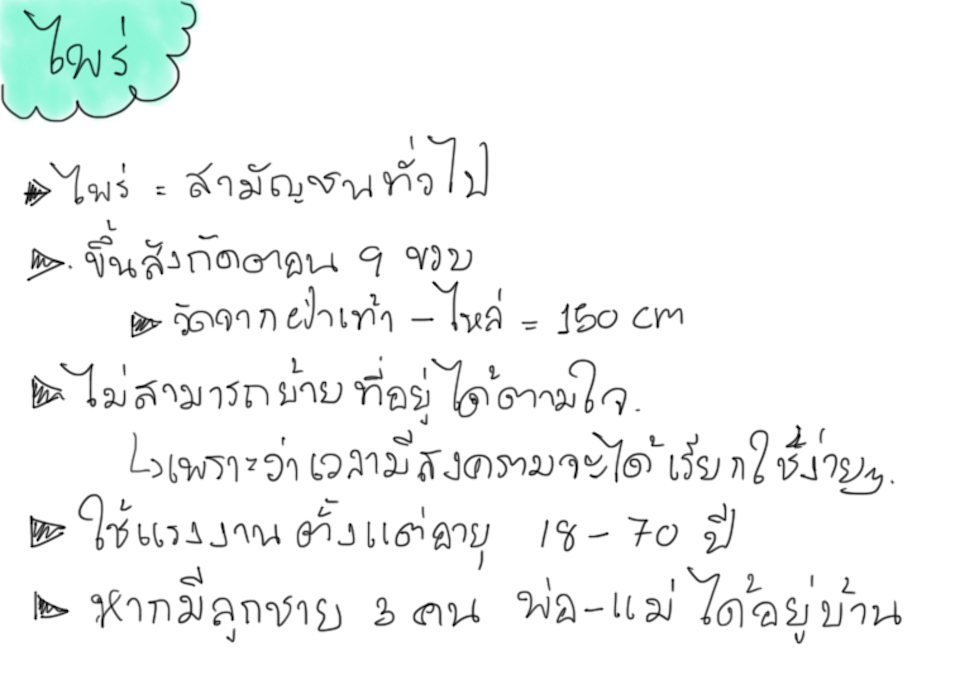 ไพร่
ไพร่ = สามัญชนทั่วไป
ขึ้นสังกัดตอน 9 ขวบ
วัดจากฝ่าเท้า - ไหล่ = 150 cm
ไม่สามารถย้ายที่อยู่ได้ตามใจ.
↳เพราะว่าเวลามีสงครามจะได้เรียกใช้ง่ายๆ.
ใช้แรงงานตั้งแต่อายุ 18 - 70 ปี
หากมีลูกชาย 3 คน พ่อ-แม่ ได้อยู่บ้าน